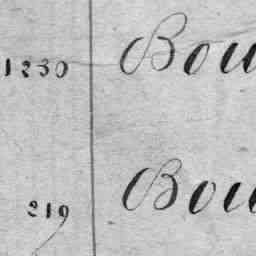 1230 Bou
219 Bou